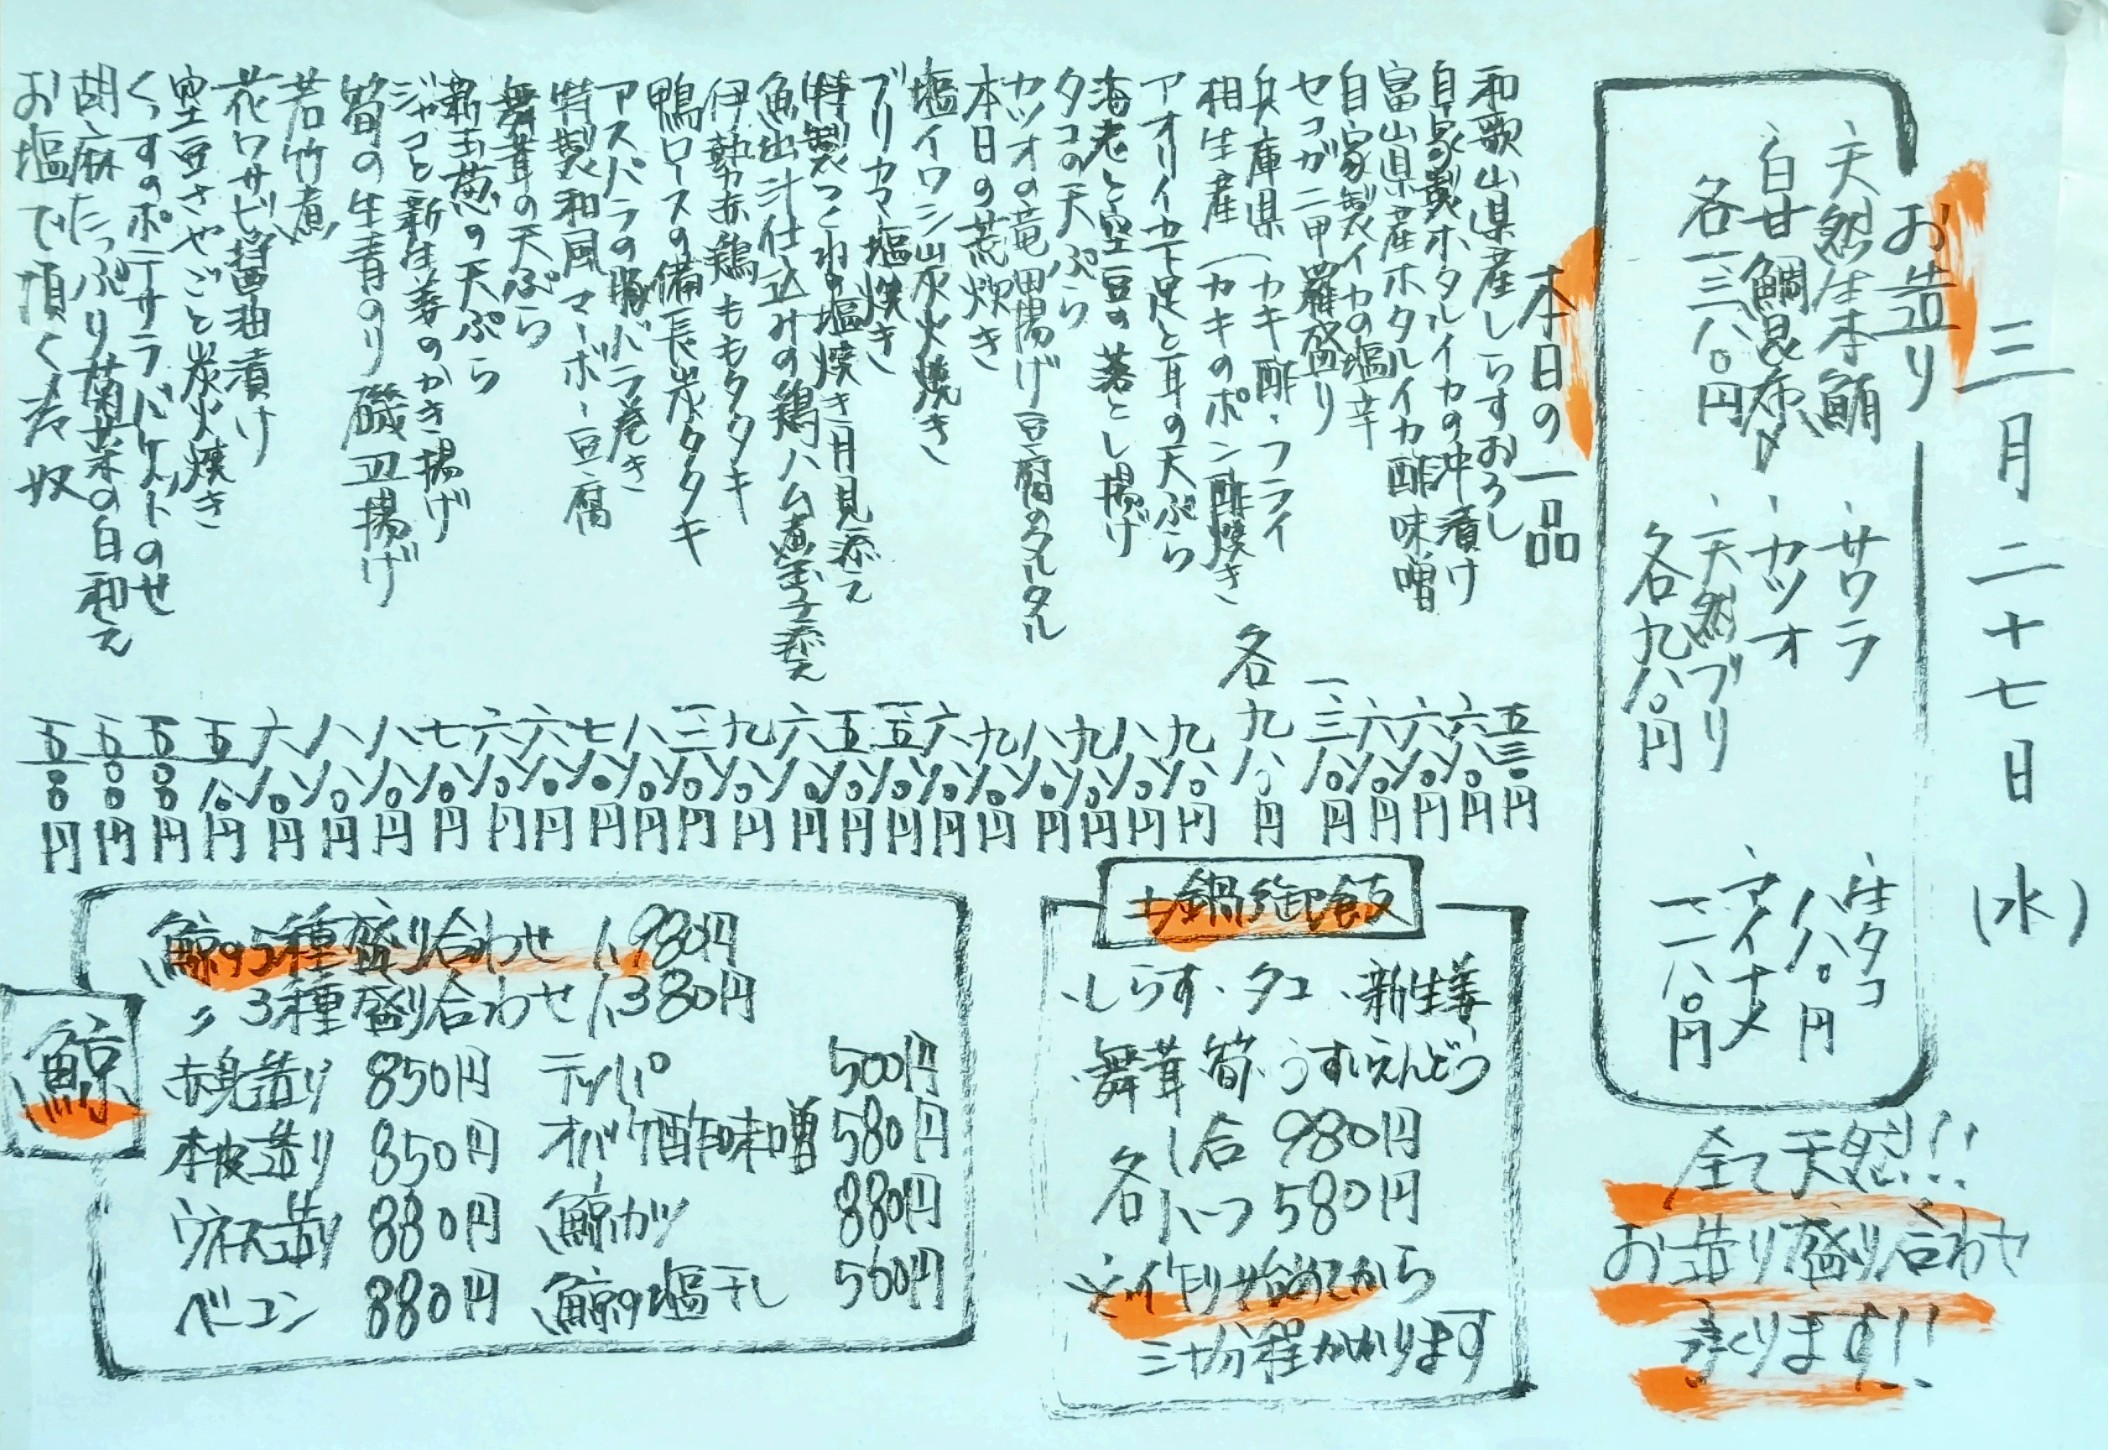 三月二十七日(水)
お造り
、天然生本鮪
、白甘鯛昆布〆
各一三八〇円
、サワラ
、カツオ
、天然ブリ
各九八〇円
、生タコ
八八〇円
、アイナメ
一一八〇円
全て天然!!
お造り盛り合わせ
承ります!!
本日の一品
和歌山県産しらすおろし 五三〇円
自家製ホタルイカの沖漬け 六八〇円
富山県産ホタルイカ酢味噌 六八〇円
自家製イカの塩辛 六八〇円
セコガニ甲羅盛り 一三八〇円
兵庫県(カキ酢・フライ
相生産(カキのポン酢焼き 各九八〇円
アオリイカ下足と耳の天ぷら 九八〇円
海老と空豆の落とし揚げ 八八〇円
タコの天ぷら 九八〇円
カツオの竜田揚げ豆腐のタルタル 八八〇円
本日の荒炊き 九八〇円
塩イワシ炭火焼き 六八〇円
ブリカマ塩焼き
特製つくねの塩焼き月見添え 五八〇円
魚出汁仕込みの鶏ハム煮玉子添え 六八〇円
伊勢赤鶏ももタタキ 九八〇円
鴨ロースの備長炭タタキ
アスパラの豚バラ巻き 八八〇円
特製和風マーボー豆腐 七八〇円
舞茸の天ぷら 六八〇円
新玉葱の天ぷら 六八〇円
ジャコと新生姜のかき揚げ 七八〇円
筍の生青のり磯辺揚げ 八八〇円
若竹煮 八八〇円
花ワサビ醤油漬け 六八〇円
空豆さやごと炭火焼き 五八〇円
くっすのポテサラバケットのせ 五〇〇円
胡麻たっぷり菊菜の白和え 五〇〇円
お塩で頂く冷奴 五〇〇円
土鍋御飯
、しらす、タコ、新生姜
、舞茸、筍、うすいえんどう
各 一合 980円
ハーフ 580円
※作り始めてから
三十分程かかります
鯨
鯨の5種盛り合わせ 1,980円
〃 3種盛り合わせ 1,380円
赤身造り 850円 テッパ 500円
本皮造り 850円 オバケ酢味噌 580円
ウネス造り 880円 鯨カツ 880円
ベーコン 880円 鯨の塩干し 560円